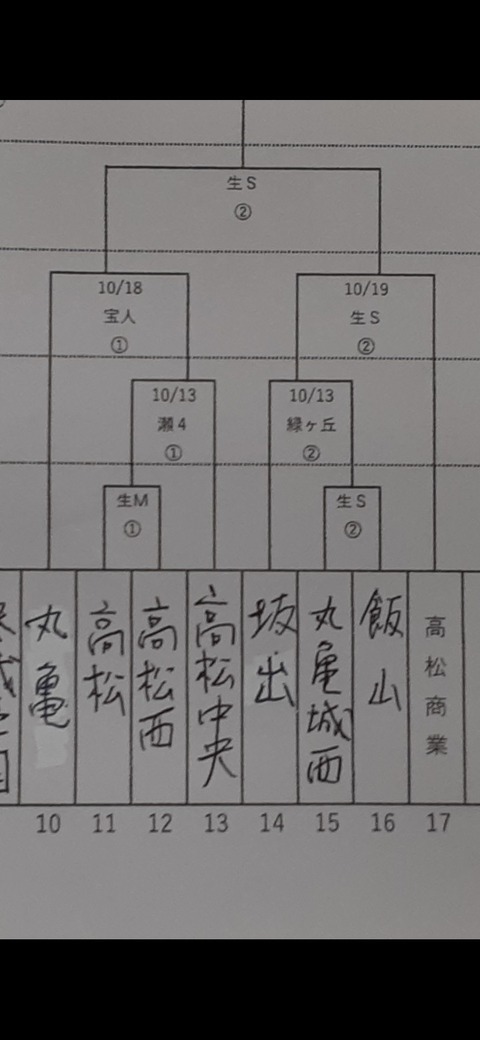 生S
②
10/18
宝人
①
10/19
生S
②
10/13
瀬4
①
10/13
緑ヶ丘
②
生M
①
生S
②
丸亀
高松
高松西
高松中央
坂出
丸亀城西
飯山
高松商業
10
11
12
13
14
15
16
17